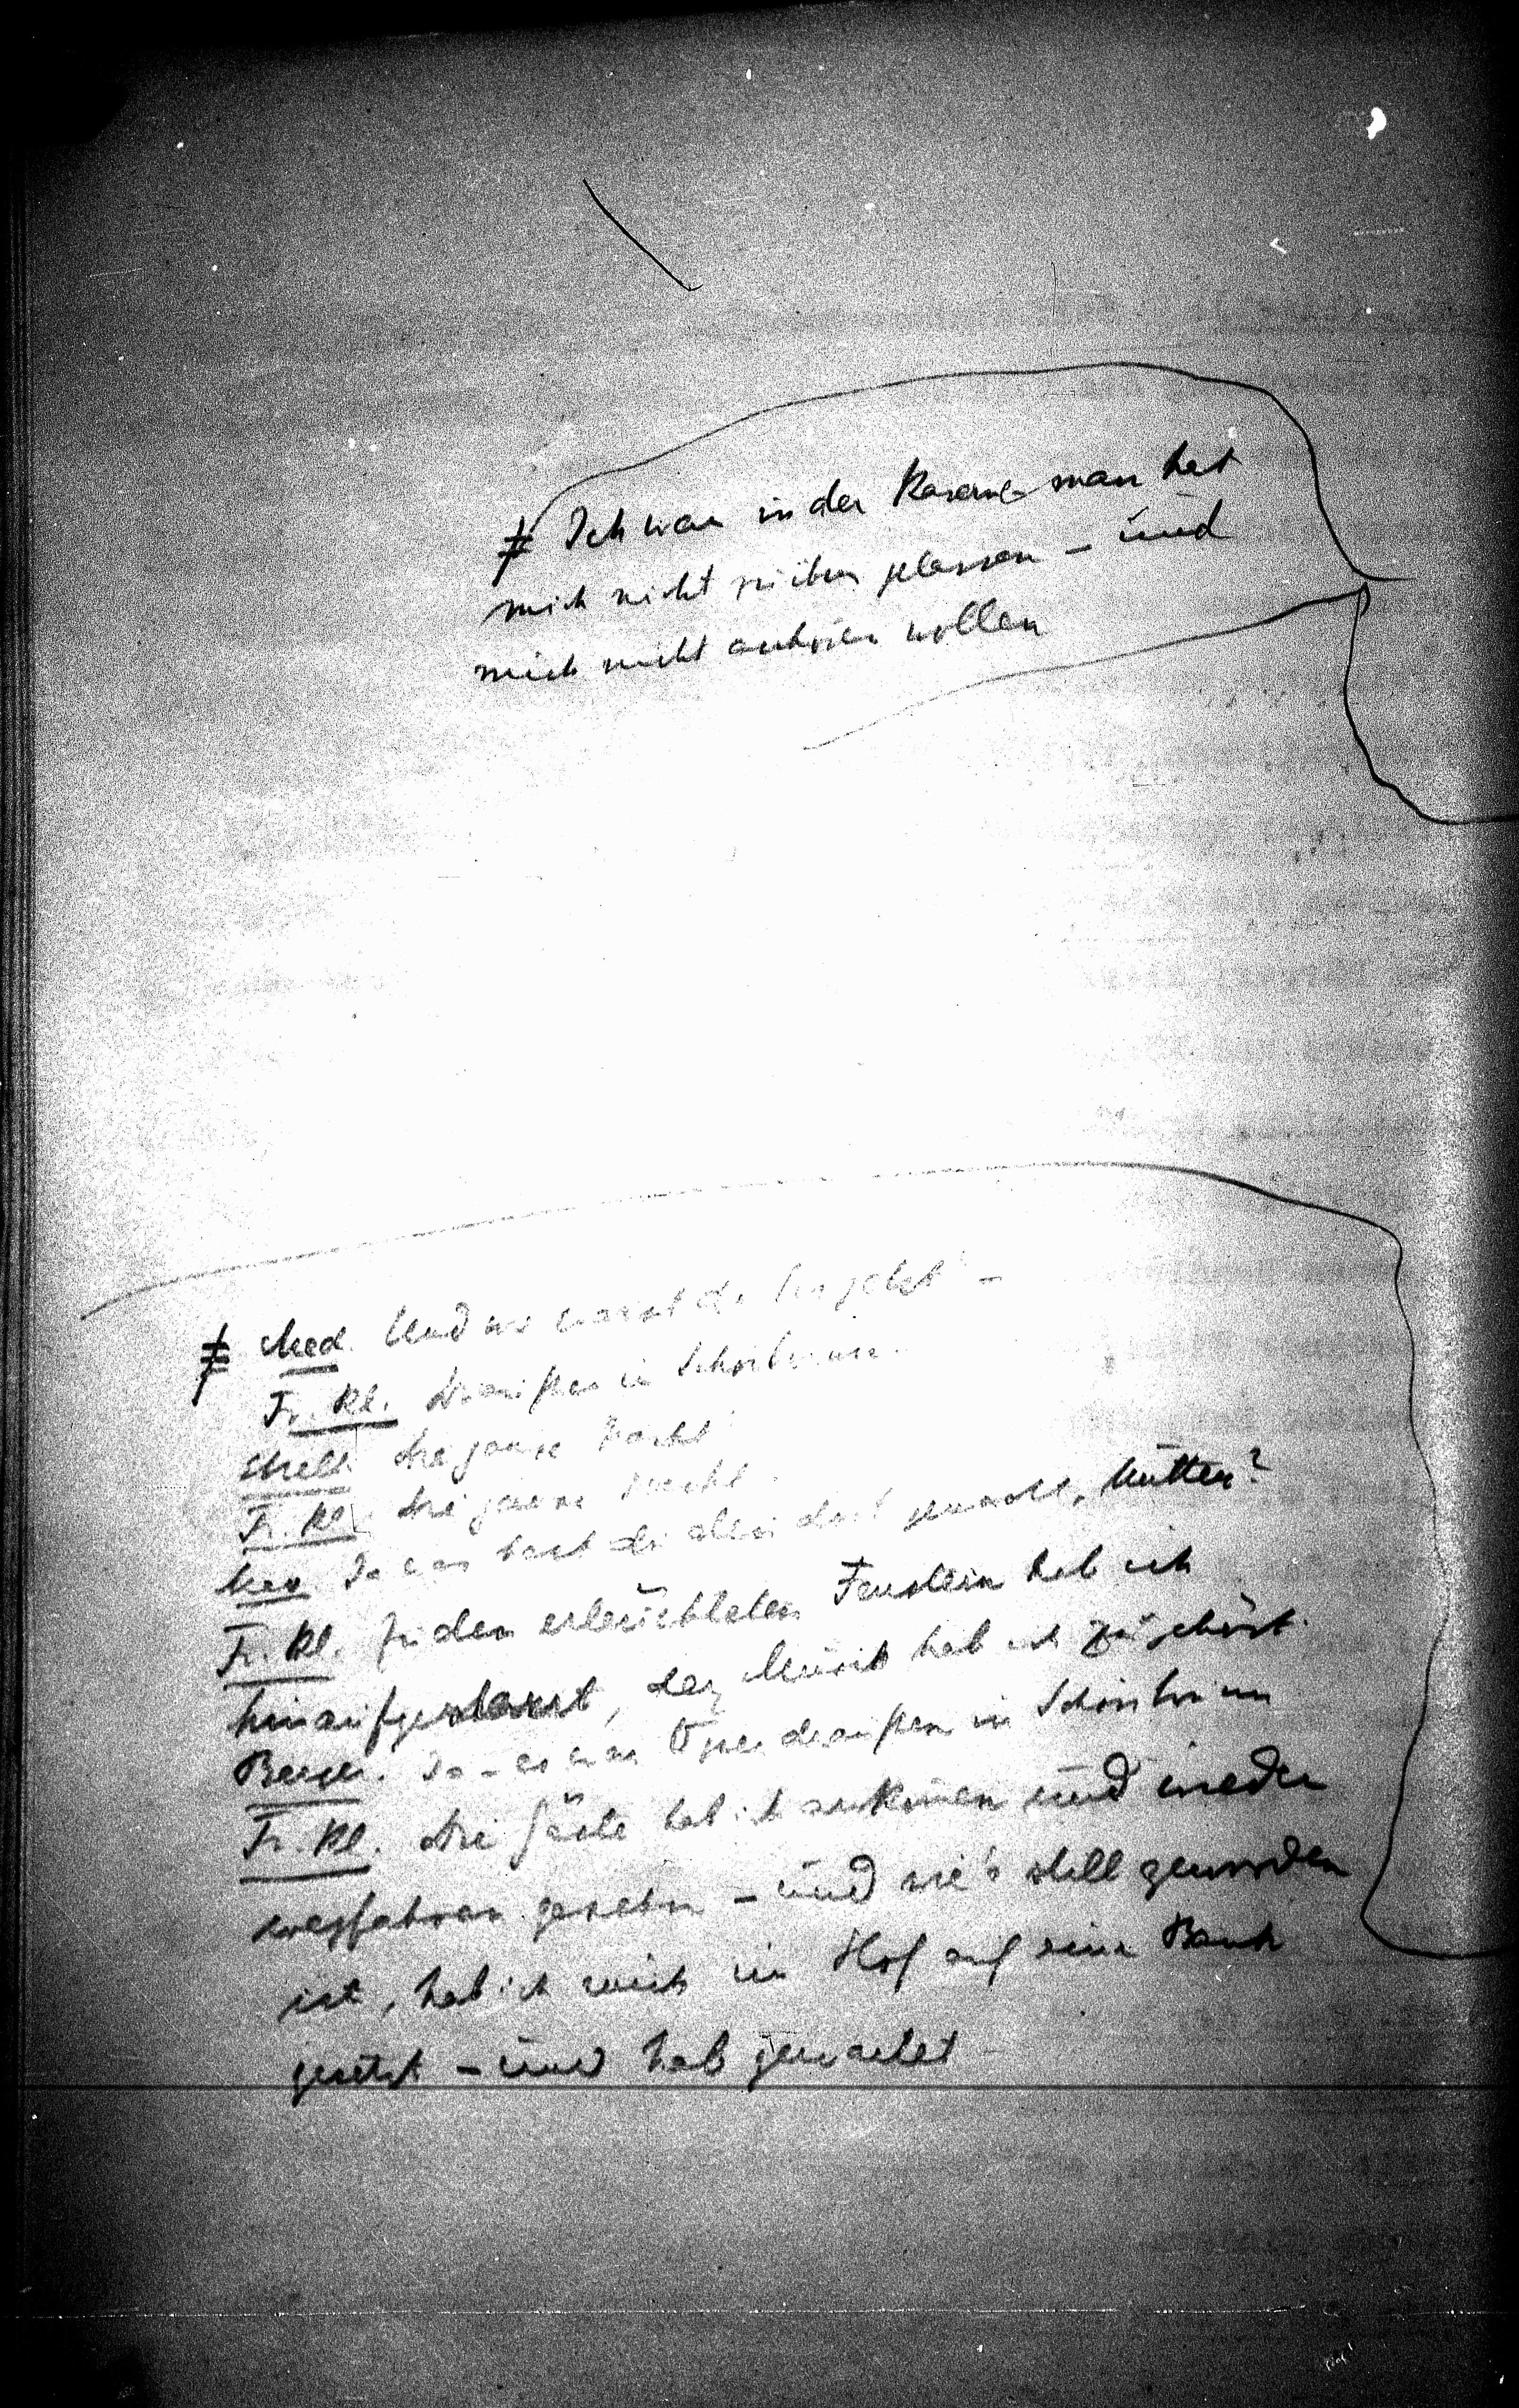 Ich war in der Kaserne man hat
mich nicht zu ihm gelassen – und
mich nicht anhören wollen
Med. Und wo warst du bis jetzt –
Fr. Kl. Draußen in Schönbrunn.
Die ganze Nacht
Fr. Kl. Die ganze Nacht.
Ja was hast du allein dort gemacht, Mutter?
Fr. Kl. Zu den erleuchteten Fenstern hab ich
hinaufgestarrt, der Musik hab ich zugehört.
Berger. Ja – es war Oper draußen in Schönbrunn
Fr. Kl. Die Gäste hab ich ankommen und wieder
wegfahren gesehn – und wie's still geworden
ist, hab ich mich im Hof auf eine Bank
gesetzt – und hab gewartet